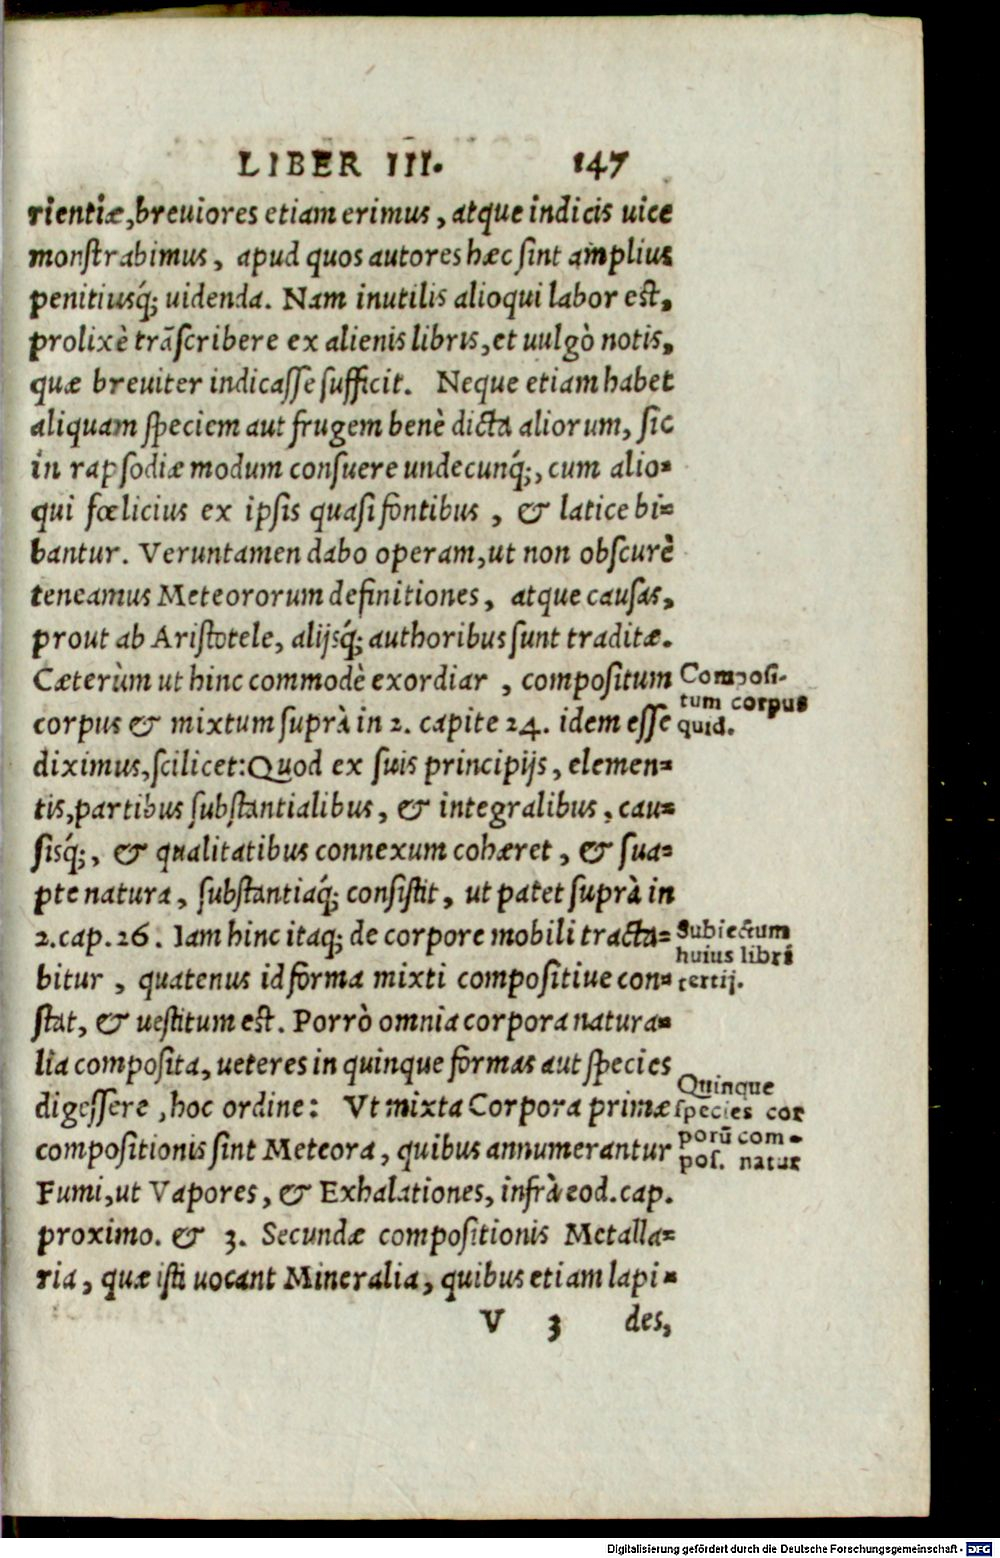 LIBER III. 147
rientiæ, breuiores etiam erimus, atque indicis uice
monſtrabimus, apud quos autores hæc ſint amplius
penitiusq́; uidenda. Nam inutilis alioqui labor eſt,
prolixè trãſcribere ex alienis libris, et uulgò notis,
quæ breuiter indicaſſe ſufficit. Neque etiam habet
aliquam ſpeciem aut frugem benè dicta aliorum, ſic
in rapſodiæ modum conſuere undecunq́;, cum alio-
qui fœlicius ex ipſis quaſi fontibus, & latice bi-
bantur. Veruntamen dabo operam, ut non obſcurè
teneamus Meteororum definitiones, atque cauſas,
prout ab Ariſtotele, alijsq́; authoribus ſunt traditæ.
Cæterùm ut hinc commodè exordiar, compoſitum
corpus & mixtum ſuprà in 2. capite 24. idem eſſe
diximus, ſcilicet: Quod ex ſuis principijs, elemen-
tis, partibus ſubſtantialibus, & integralibus, cau-
ſisq́;, & qualitatibus connexum cohæret, & ſua-
pte natura, ſubſtantiaq́; conſiſtit, ut patet ſuprà in
2. cap. 26. Iam hinc itaq; de corpore mobili tracta-
bitur, quatenus id forma mixti compoſitiue con-
ſtat, & ueſtitum eſt. Porrò omnia corpora natura-
lia compoſita, ueteres in quinque formas aut ſpecies
digeſſere, hoc ordine: Vt mixta Corpora primæ
compoſitionis ſint Meteora, quibus annumerantur
Fumi, ut Vapores, & Exhalationes, infrà eod. cap.
proximo. & 3. Secundæ compoſitionis Metalla-
ria, quæ iſti uocant Mineralia, quibus etiam lapi-
V 3 des,
Compoſi-
tum corpus
quid.
Subiectum
huius libri
tertij.
Quinque
ſpecies cor
porũ com-
poſ. natur
Digitalisierung gefördert durch die Deutsche Forschungsgemeinschaft - DFG